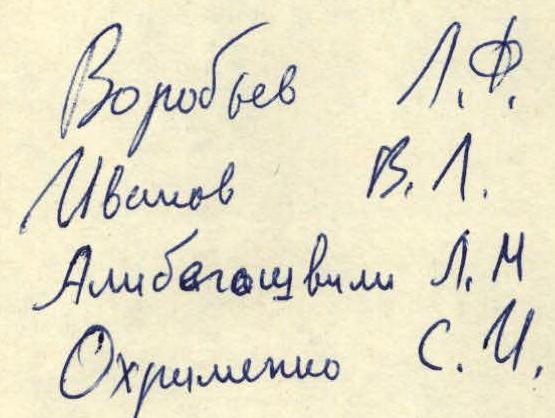 Воробьев Л.Ф.
Иванов В.Л.
Алибегашвили Л.М
Охрименко С.И.